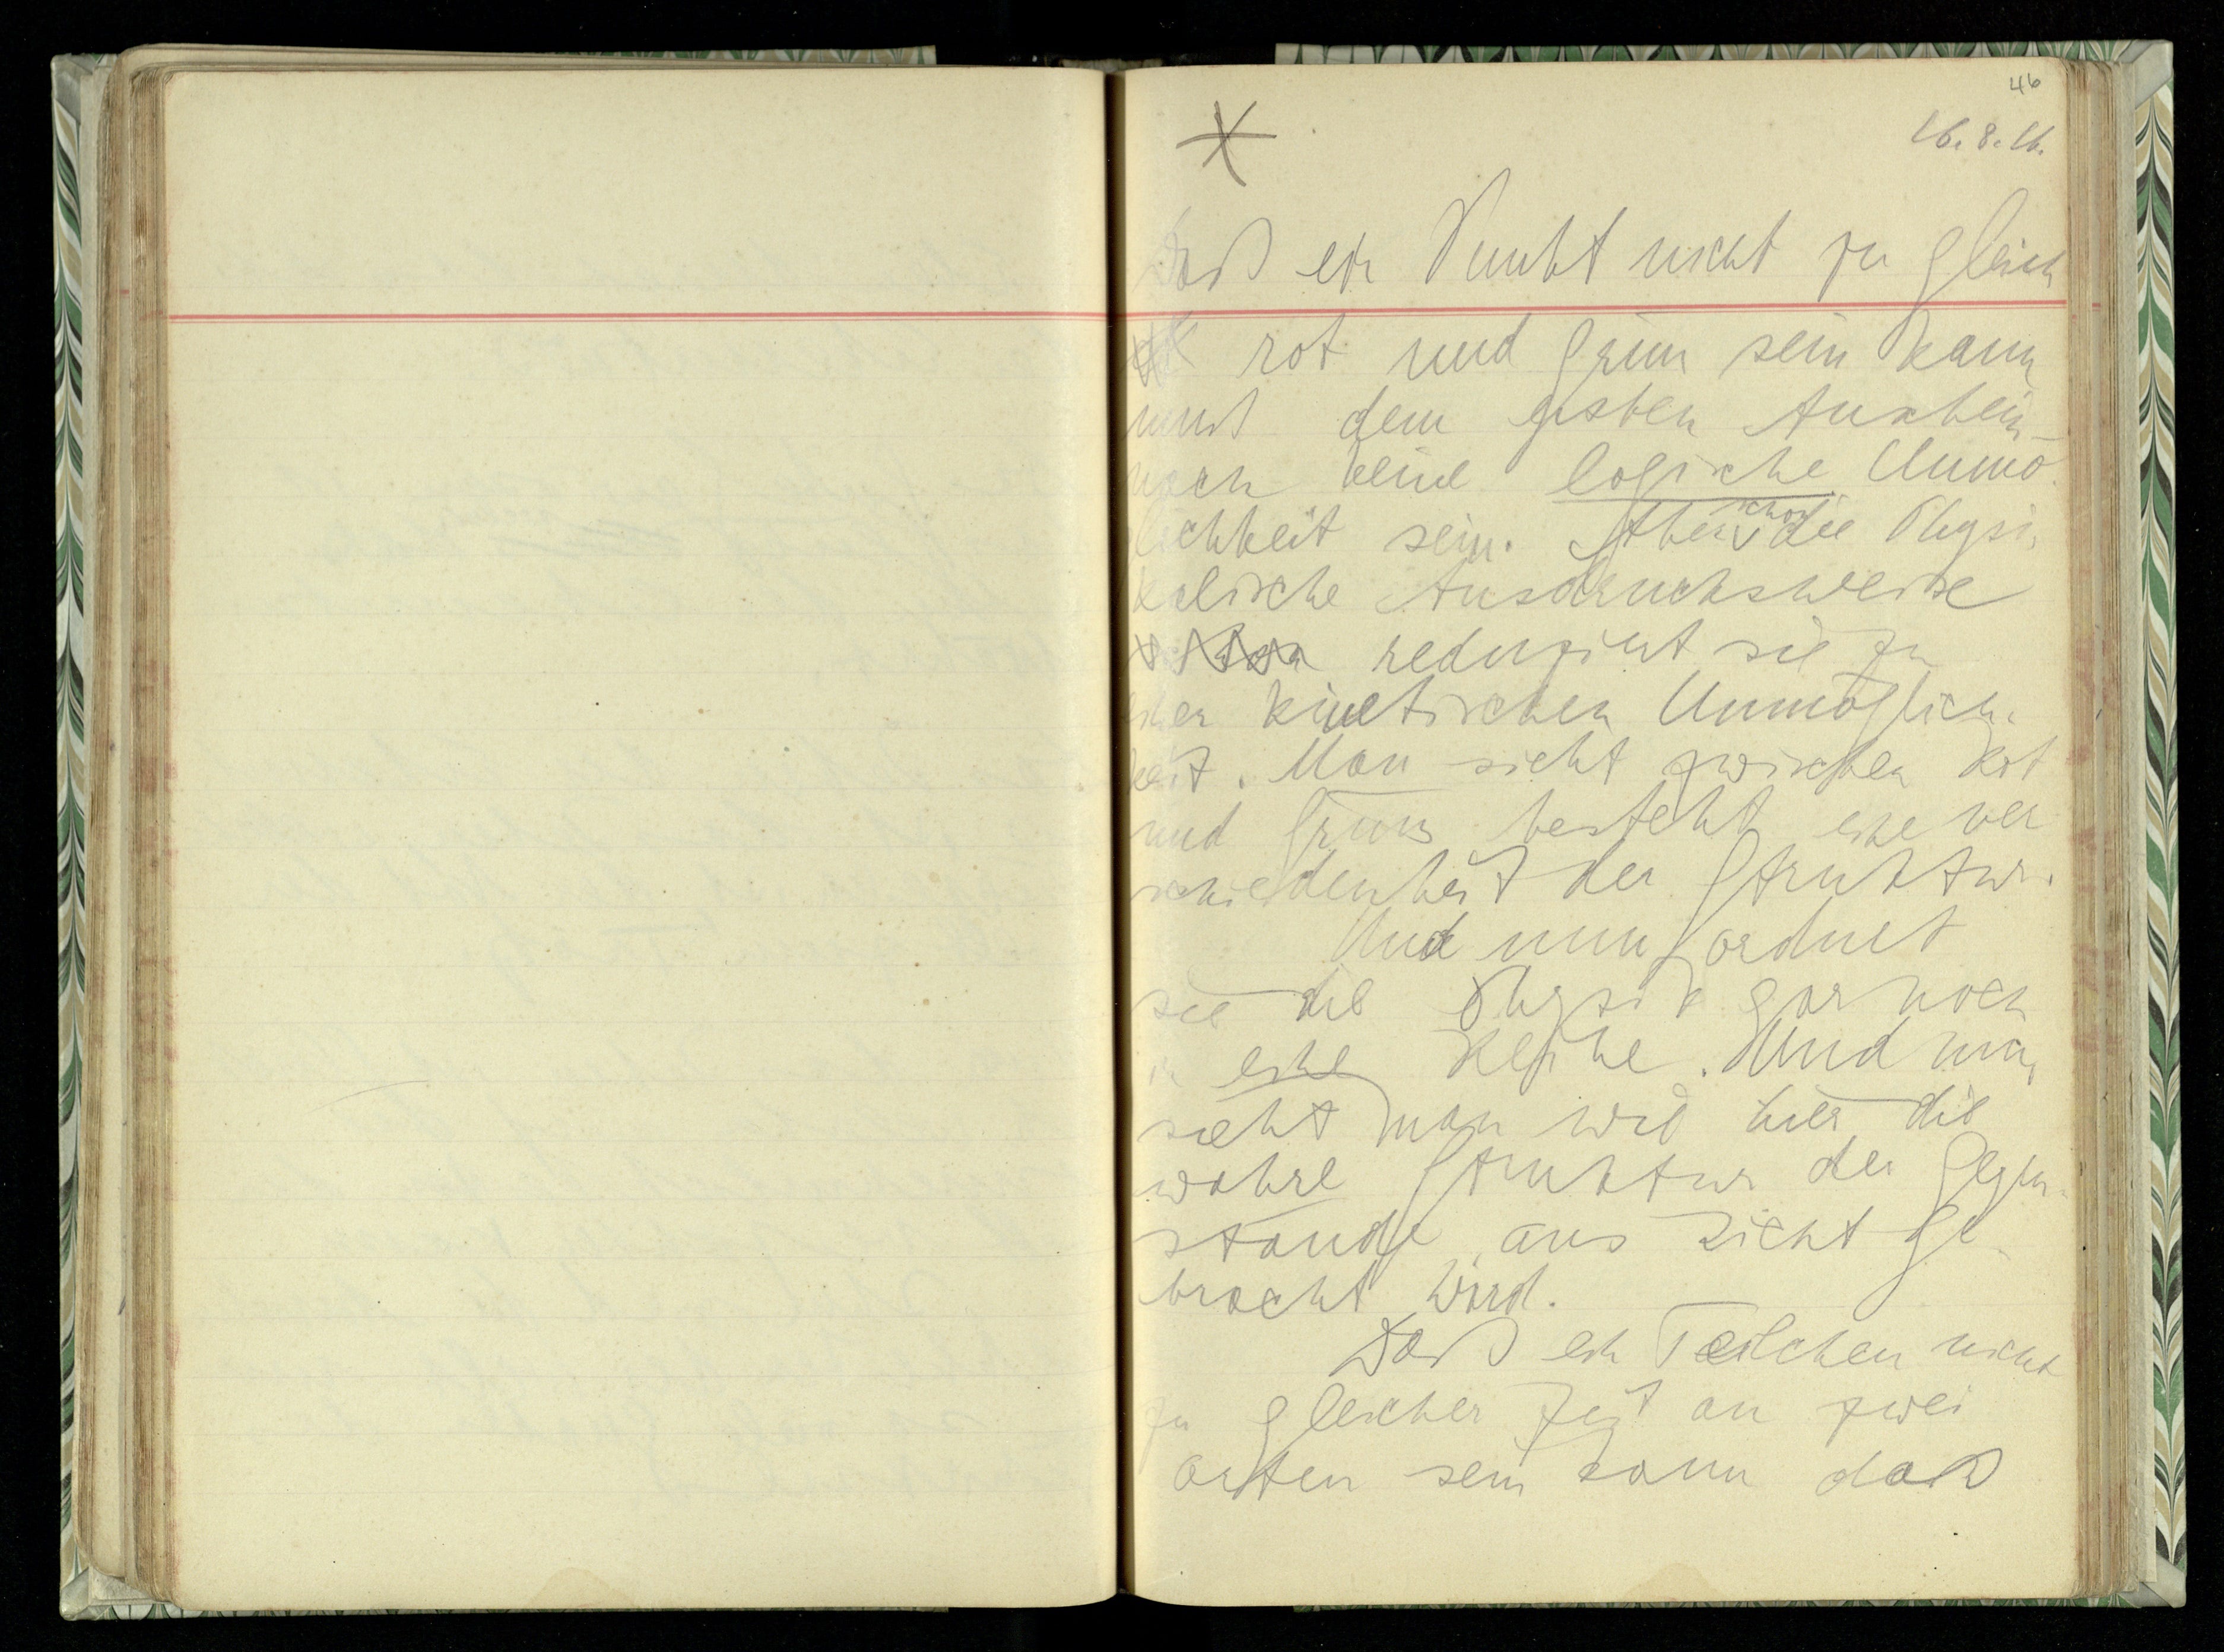 46
16. 8. 16.
Daß ein Punkt nicht zu gleich
rot und grün sein kann
muß dem ersten Anschein
nach keine logische Unmö-
lichkeit sein. Aber schon die Physi-
kalische Ausdrucksweise
reduziert sie zu
einer kinetischen Unmöglich-
keit. Man sieht zwischen Rot
und Grün besteht eine ver
schiedenheit der Struktur.
Und nun ordnet
sie die Physik gar noch
in eine Reihe. Und nun
sieht man wie hier die
wahre Struktur der Gegen-
stände ans Licht ge-
bracht wird.
Daß ein Teilchen nicht
zu gleicher Zeit an zwei
Orten sein kann daß